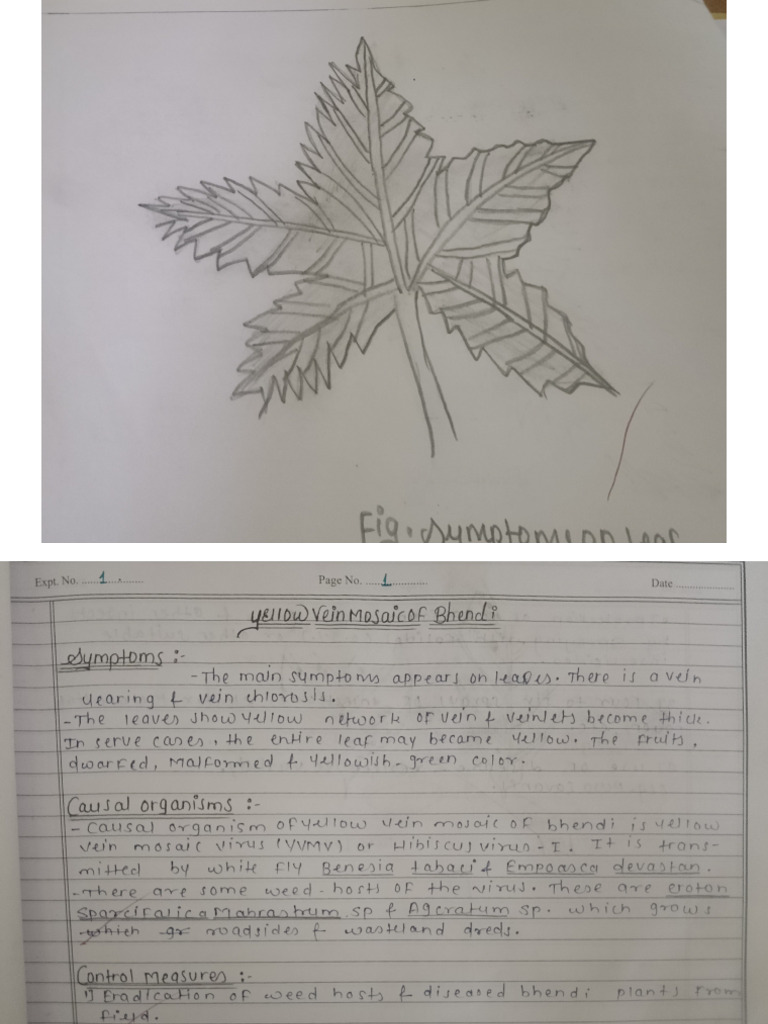 Fig. Symptoms on leaf
Expt. No. 1 Page No. 1 Date
Yellow Vein Mosaic of Bhendi
Symptoms :-
- The main symptoms appears on leaves. There is a vein
yearing & vein chlorosis.
- The leaves show yellow network of vein & veinlets become thick.
In serve cases, the entire leaf may became yellow. The fruits,
dwarfed, malformed & yellowish-green color.
Causal organisms :-
- Causal organism of yellow vein mosaic of bhendi is yellow
vein mosaic virus (YVMV) or Hibiscus virus-I. It is trans-
mitted by white fly Benesia tabaci & Empoasca devastan.
- There are some weed-hosts of the virus. These are croton
Sparcifalica Mahrastrum sp & Ageratum sp. which grows
which gr roadsides & wasteland dreds.
Control measures :-
1) Eradication of weed hosts & diseased bhendi plants from
field.